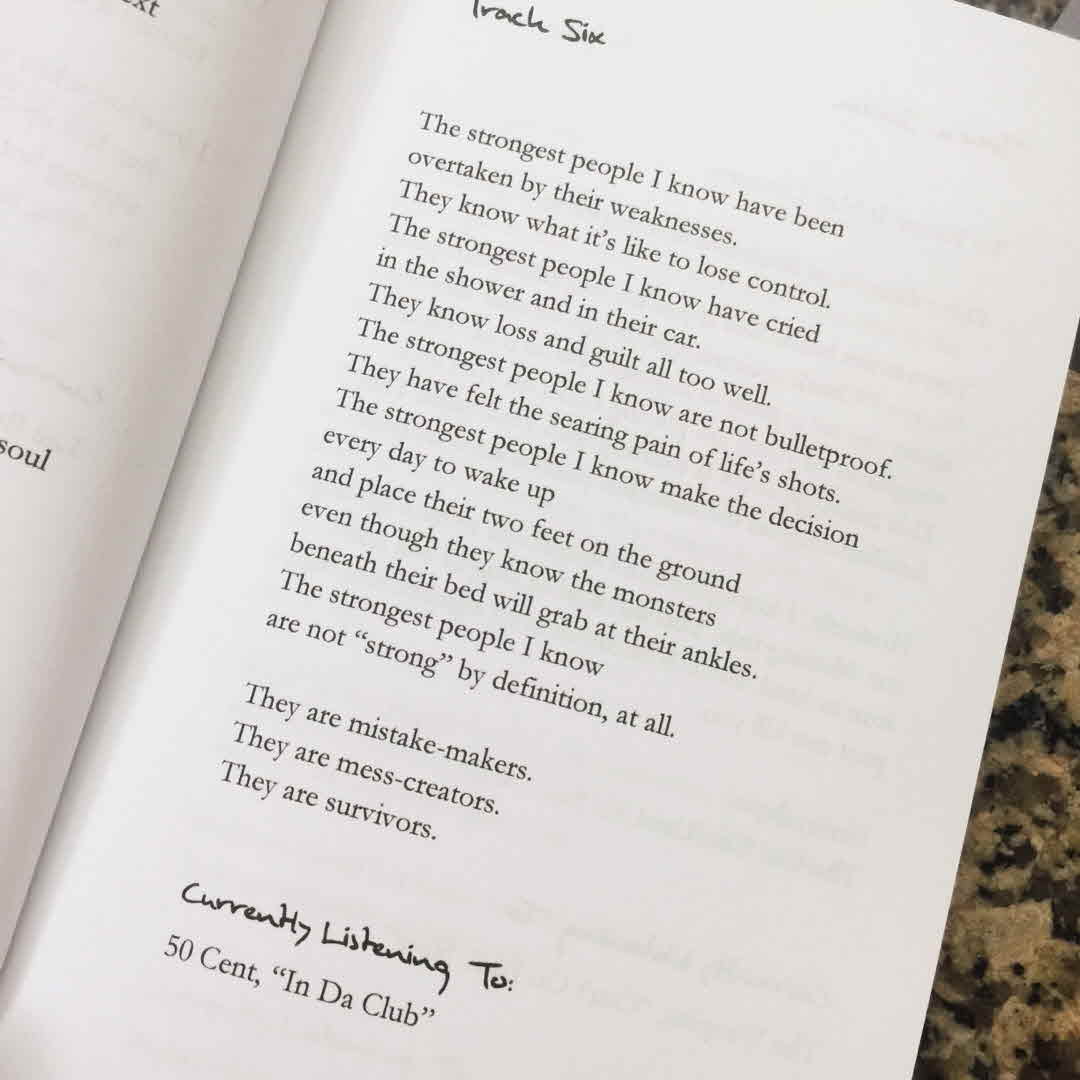 Track Six
The strongest people I know have been
overtaken by their weaknesses.
They know what it's like to lose control.
The strongest people I know have cried
in the shower and in their car.
They know loss and guilt all too well.
The strongest people I know are not bulletproof.
They have felt the searing pain of life's shots.
The strongest people I know make the decision
every day to wake up
and place their two feet on the ground
even though they know the monsters
beneath their bed will grab at their ankles.
The strongest people I know
are not “strong” by definition, at all.
They are mistake-makers.
They are mess-creators.
They are survivors.
Currently Listening To:
50 Cent, “In Da Club”
soul